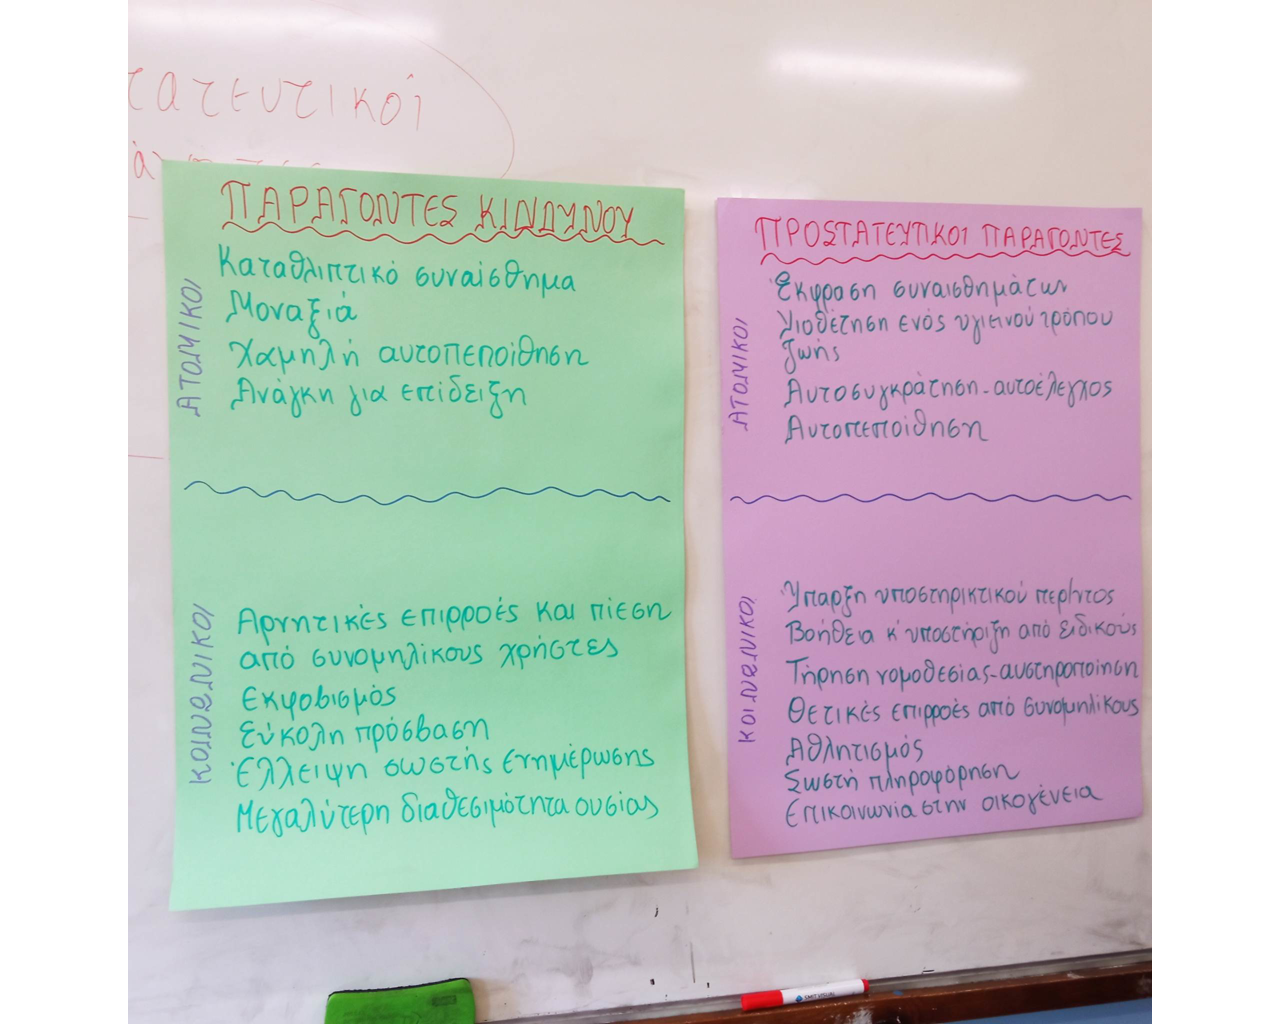 τατευτικοί
ΠΑΡΑΓΟΝΤΕΣ ΚΙΝΔΥΝΟΥ
ΑΤΟΜΙΚΟΙ
Καταθλιπτικό συναίσθημα
Μοναξιά
Χαμηλή αυτοπεποίθηση
Ανάγκη για επίδειξη
ΚΟΙΝΩΝΙΚΟΙ
Αρνητικές επιρροές και πίεση
από συνομηλίκους χρήστες
Εκφοβισμός
Εύκολη πρόσβαση
Έλλειψη σωστής ενημέρωσης
Μεγαλύτερη διαθεσιμότητα ουσίας
ΠΡΟΣΤΑΤΕΥΤΙΚΟΙ ΠΑΡΑΓΟΝΤΕΣ
ΑΤΟΜΙΚΟΙ
Έκφραση συναισθημάτων
Υιοθέτηση ενός υγιεινού τρόπου
ζωής
Αυτοσυγκράτηση-αυτοέλεγχος
Αυτοπεποίθηση
ΚΟΙΝΩΝΙΚΟΙ
Ύπαρξη υποστηρικτικού περ/ντος
Βοήθεια κ' υποστήριξη από ειδικούς
Τήρηση νομοθεσίας-αυστηροποίηση
Θετικές επιρροές από συνομηλίκους
Αθλητισμός
Σωστή πληροφόρηση
Επικοινωνία στην οικογένεια